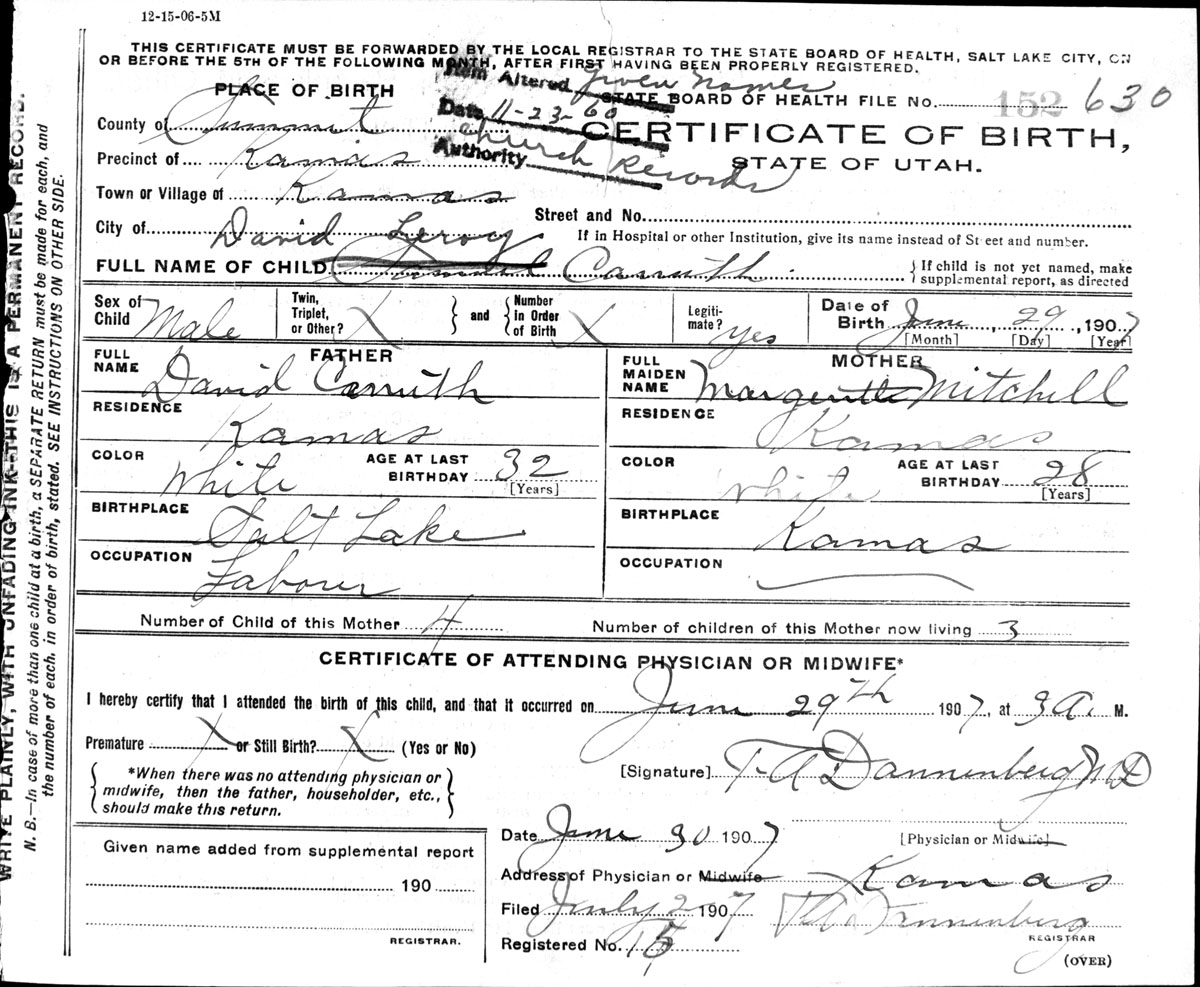 12-15-06-5M
THIS CERTIFICATE MUST BE FORWARDED BY THE LOCAL REGISTRAR TO THE STATE BOARD OF HEALTH, SALT LAKE CITY, ON
OR BEFORE THE 5TH OF THE FOLLOWING MONTH, AFTER FIRST HAVING BEEN PROPERLY REGISTERED.
Item Altered Given Names
PLACE OF BIRTH
STATE BOARD OF HEALTH FILE NO. 152 630
Date 11-23-60
County of Summit
CERTIFICATE OF BIRTH,
Authority Church Records
Precinct of Kamas
STATE OF UTAH.
Town or Village of Kamas
Street and No.
City of
If in Hospital or other Institution, give its name instead of Street and number.
David Leroy
FULL NAME OF CHILD Carruth
If child is not yet named, make
supplemental report, as directed
Sex of Child Male
Twin, Triplet, or Other? X
and
Number in Order of Birth X
Legitimate? yes
Date of Birth June, 29, 1907
[Month] [Day] [Year]
FATHER
FULL NAME David Carruth
RESIDENCE Kamas
COLOR White
AGE AT LAST BIRTHDAY 32
[Years]
BIRTHPLACE Salt Lake
OCCUPATION Labour
MOTHER
FULL MAIDEN NAME Mitchell
RESIDENCE Kamas
COLOR White
AGE AT LAST BIRTHDAY 28
[Years]
BIRTHPLACE Kamas
OCCUPATION
Number of Child of this Mother 4
Number of children of this Mother now living 3
CERTIFICATE OF ATTENDING PHYSICIAN OR MIDWIFE*
I hereby certify that I attended the birth of this child, and that it occurred on June 29th 1907, at 3 A. M.
Premature X or Still Birth? X (Yes or No)
*When there was no attending physician or
midwife, then the father, householder, etc.,
should make this return.
[Signature] T. A. Dannenberg MD
[Physician or Midwife]
Given name added from supplemental report
190
REGISTRAR.
Date June 30 1907
Address of Physician or Midwife Kamas
Filed July 2 1907 T. A. Dannenberg
REGISTRAR
Registered No. 15
(OVER)
WRITE PLAINLY, WITH UNFADING INK—THIS IS A PERMANENT RECORD.
N. B.—In case of more than one child at a birth, a SEPARATE RETURN must be made for each, and
the number of each, in order of birth, stated. SEE INSTRUCTIONS ON OTHER SIDE.